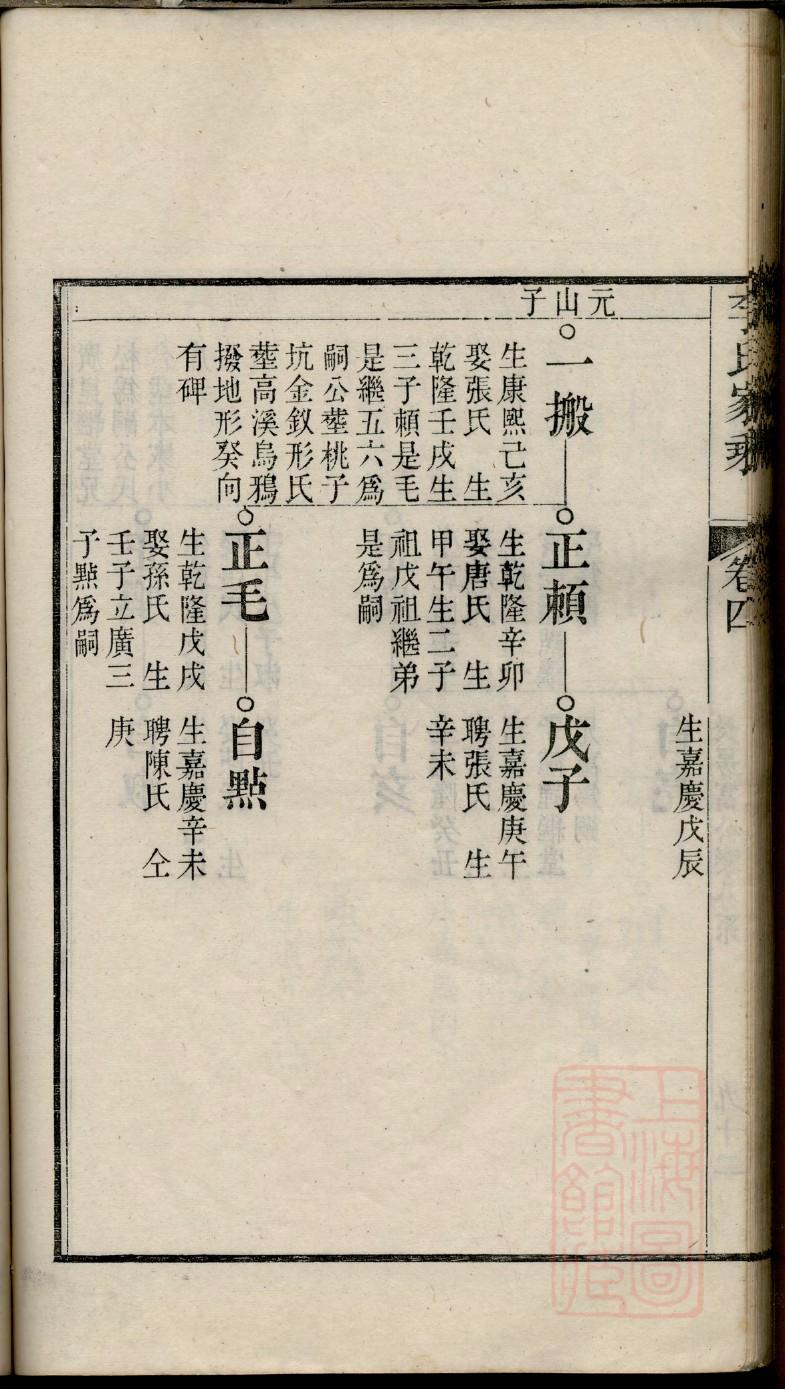 李氏家乘
卷四
生嘉慶戊辰
元山子
一搬
生康熙己亥
娶張氏 生
乾隆壬戌生
三子頼是毛
是繼五六爲
嗣公塟桃子
坑金釵形氏
塟高溪烏鴉
撥地形癸向
有碑
正頼
生乾隆辛卯
娶唐氏 生
甲午生二子
祖戊祖繼弟
是爲嗣
戊子
生嘉慶庚午
聘張氏 生
辛未
正毛
生乾隆戊戌
娶孫氏 生
壬子立廣三
子㸃爲嗣
自㸃
生嘉慶辛未
聘陳氏 仝
庚
上海圖
書館藏